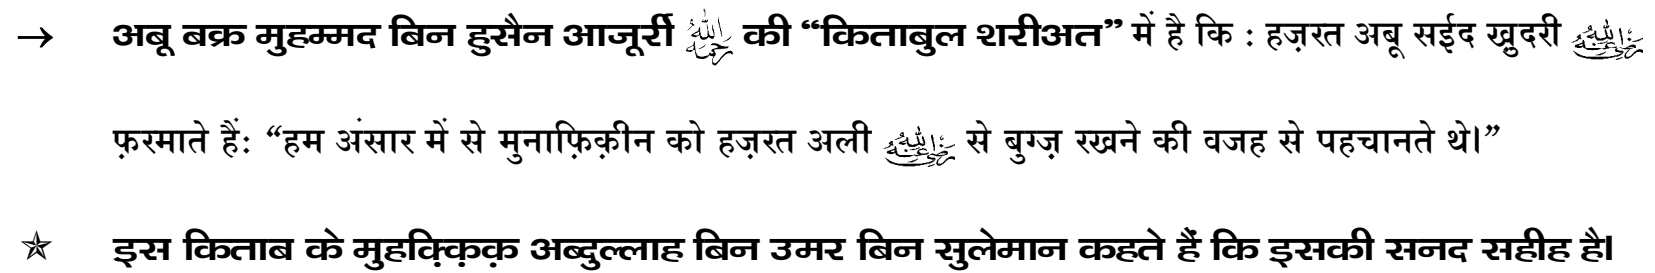 → अबू बक्र मुहम्मद बिन हुसैन आजूर्री رحمه الله की “किताबुल शरीअत” में है कि : हज़रत अबू सईद खुदरी رضي الله عنه
फ़रमाते हैं: “हम अंसार में से मुनाफ़िक़ीन को हज़रत अली رضي الله عنه से बुग्ज़ रखने की वजह से पहचानते थे।”
✯ इस किताब के मुहक़्क़िक़ अब्दुल्लाह बिन उमर बिन सुलेमान कहते हैं कि इसकी सनद सहीह है।